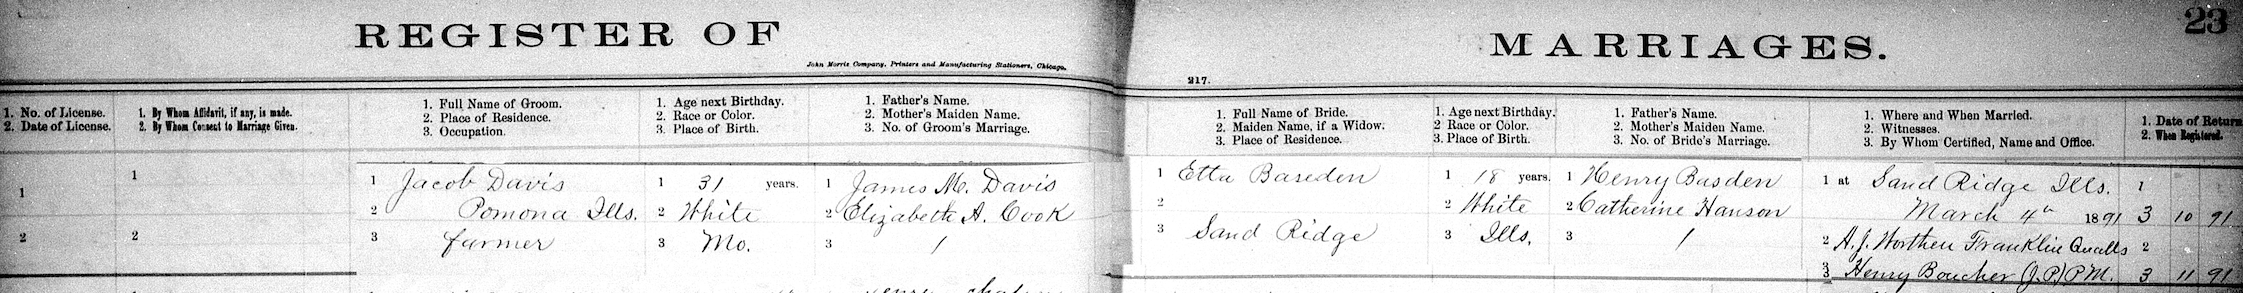 REGISTER OF MARRIAGES.
23
John Morris Company, Printers and Manufacturing Stationers, Chicago.
217.
1. No. of License.
2. Date of License.
1. By Whom Affidavit, if any, is made.
2. By Whom Consent to Marriage Given.
1. Full Name of Groom.
2. Place of Residence.
3. Occupation.
1. Age next Birthday.
2. Race or Color.
3. Place of Birth.
1. Father's Name.
2. Mother's Maiden Name.
3. No. of Groom's Marriage.
1. Full Name of Bride.
2. Maiden Name, if a Widow.
3. Place of Residence.
1. Age next Birthday.
2 Race or Color.
3. Place of Birth.
1. Father's Name.
2. Mother's Maiden Name.
3. No. of Bride's Marriage.
1. Where and When Married.
2. Witnesses.
3. By Whom Certified, Name and Office.
1. Date of Return
2. When Registered.
1
2
1
2
1 Jacob Davis
2 Pomona Ills.
3 farmer
1 31 years.
2 White
3 Mo.
1 James M. Davis
2 Elizabeth A. Cook
3 1
1 Etta Baseden
2
3 Sand Ridge
1 18 years.
2 White
3 Ills.
1 Henry Basden
2 Catherine Hanson
3 1
1 at Sand Ridge Ills.
March 4th 1891
2 A. J. Worthen Franklin Qualls
3 Henry Boucher (J.P.) P.M.
1
3 10 91
2
3 11 91